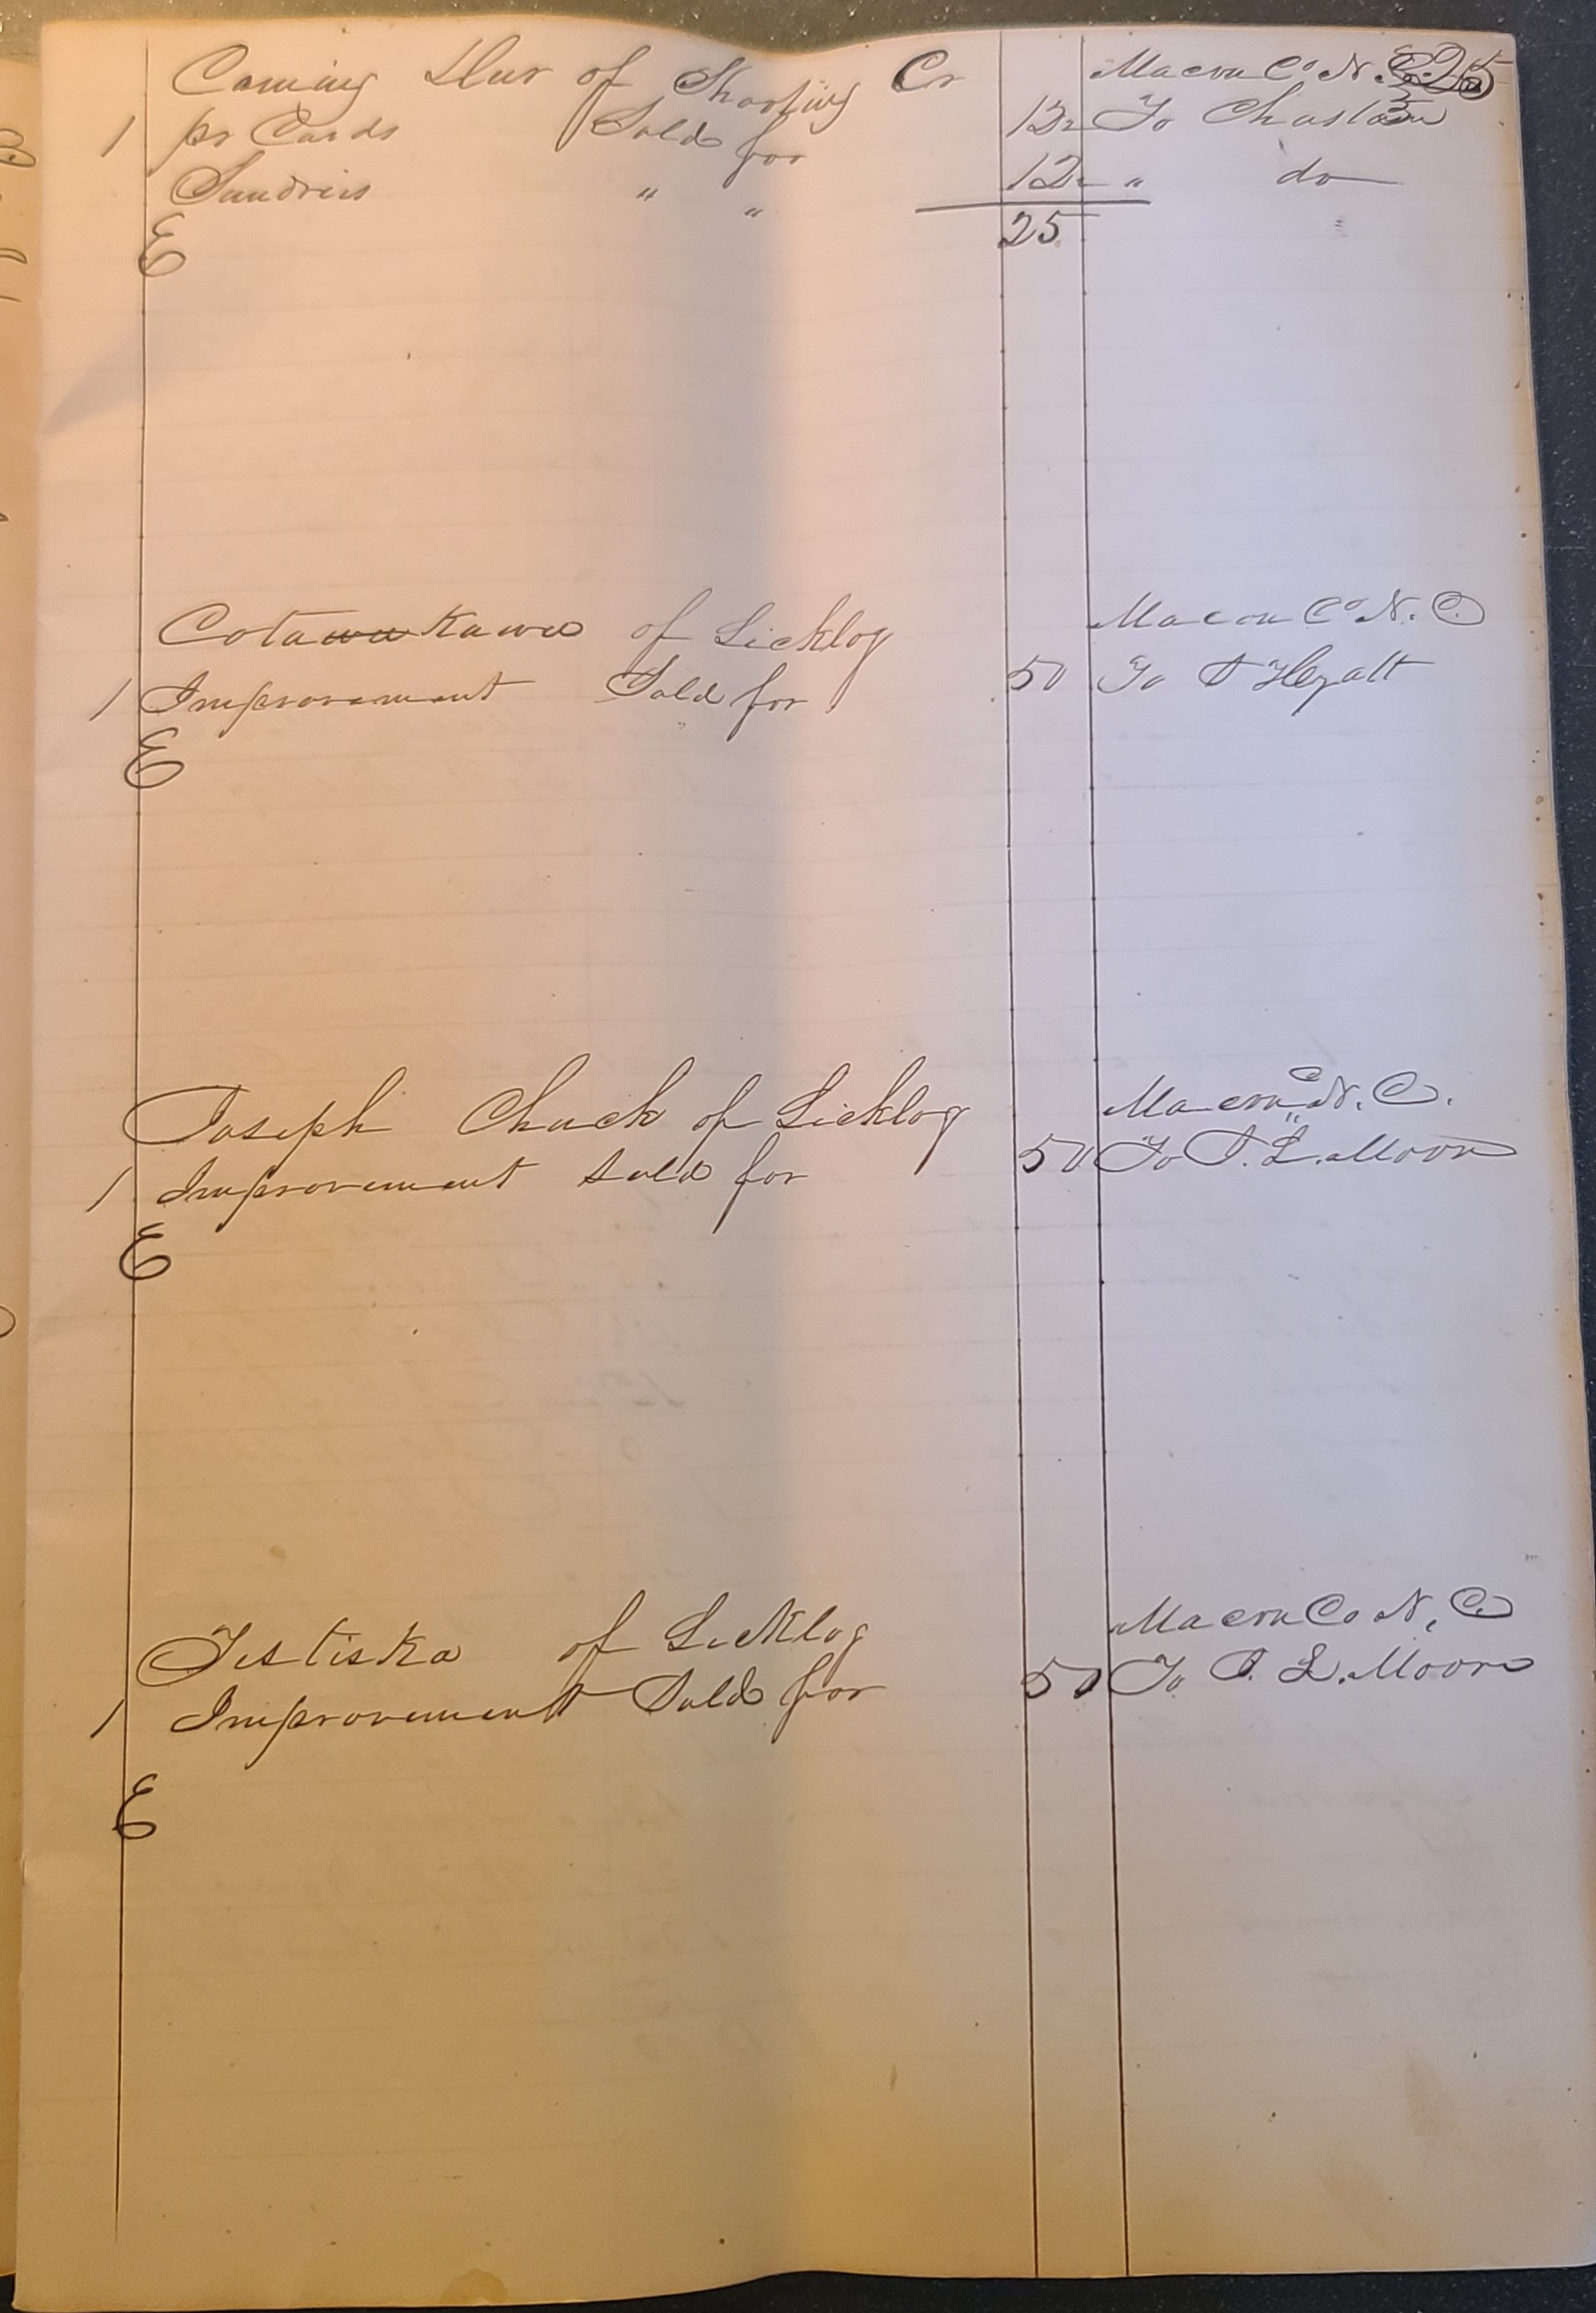 Coming Deer of Shooting Cr Macon Co. N. C. 25
1 pr Cards Sold for 12½ To Chastain
Sundries " " 12½ " do
25
E
Cotawukawee of Licklog Macon Co N. C.
1 Improvement Sold for 50 To S Hyatt
E
Joseph Chuck of Licklog Macon Co N. C.
1 Improvement Sold for 50 To T. L. Moore
E
Testiska of Licklog Macon Co N. C.
1 Improvement Sold for 50 To T. L. Moore
E